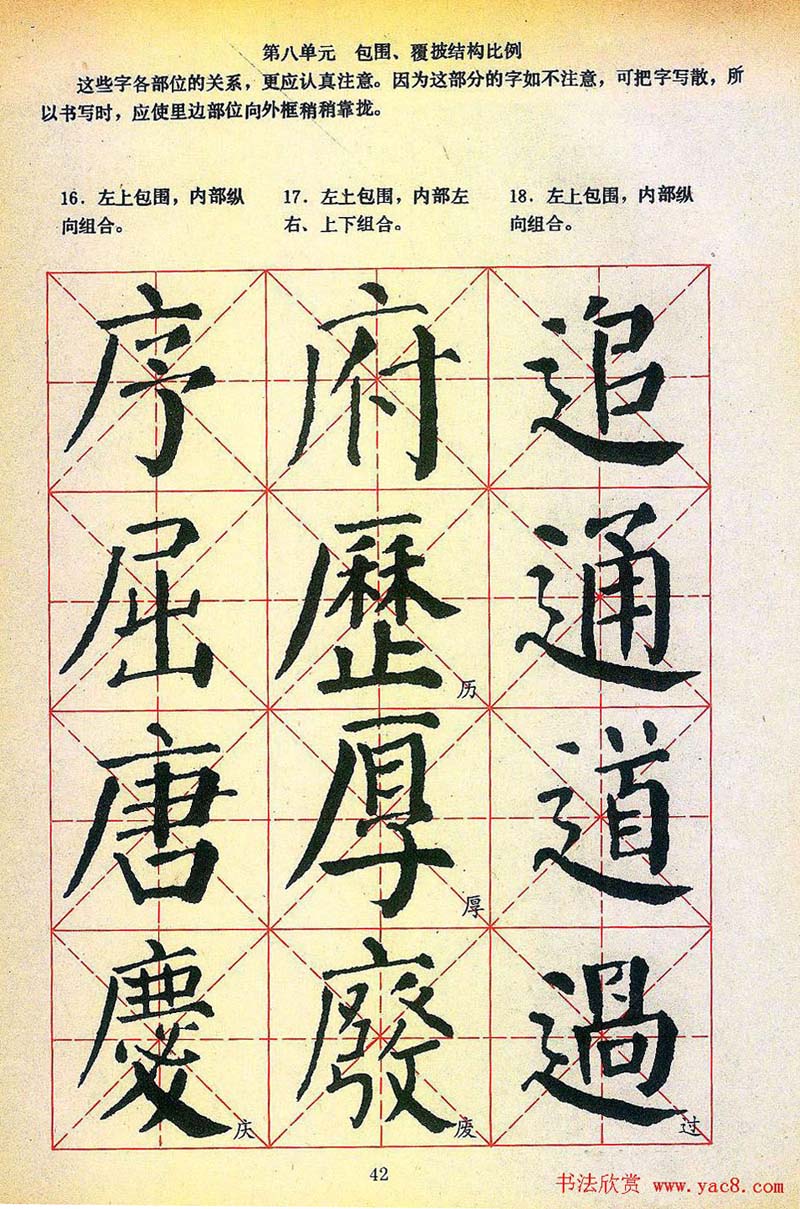 第八单元 包围、覆披结构比例
这些字各部位的关系，更应认真注意。因为这部分的字如不注意，可把字写散，所
以书写时，应使里边部位向外框稍稍靠拢。
16．左上包围，内部纵
向组合。
17．左土包围，内部左
右、上下组合。
18．左上包围，内部纵
向组合。
序 府 追
屈 歷 通
历
唐 厚 道
厚
慶 廢 過
庆 废 过
42
书法欣赏 www.yac8.com